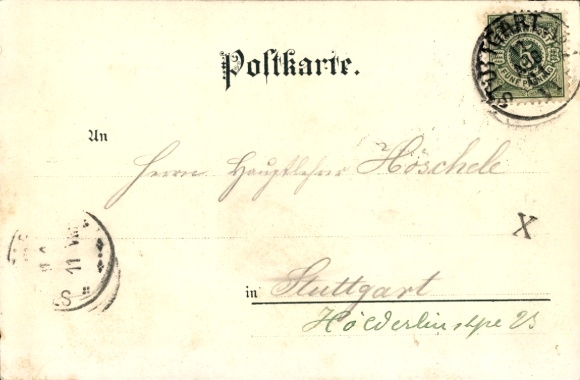 Postkarte.
STUTTGART
5
FÜNF PFENNIG
An
Herrn Hauptlehrer Höschele
X
11 VM
in Stuttgart
Hölderlinstr 23